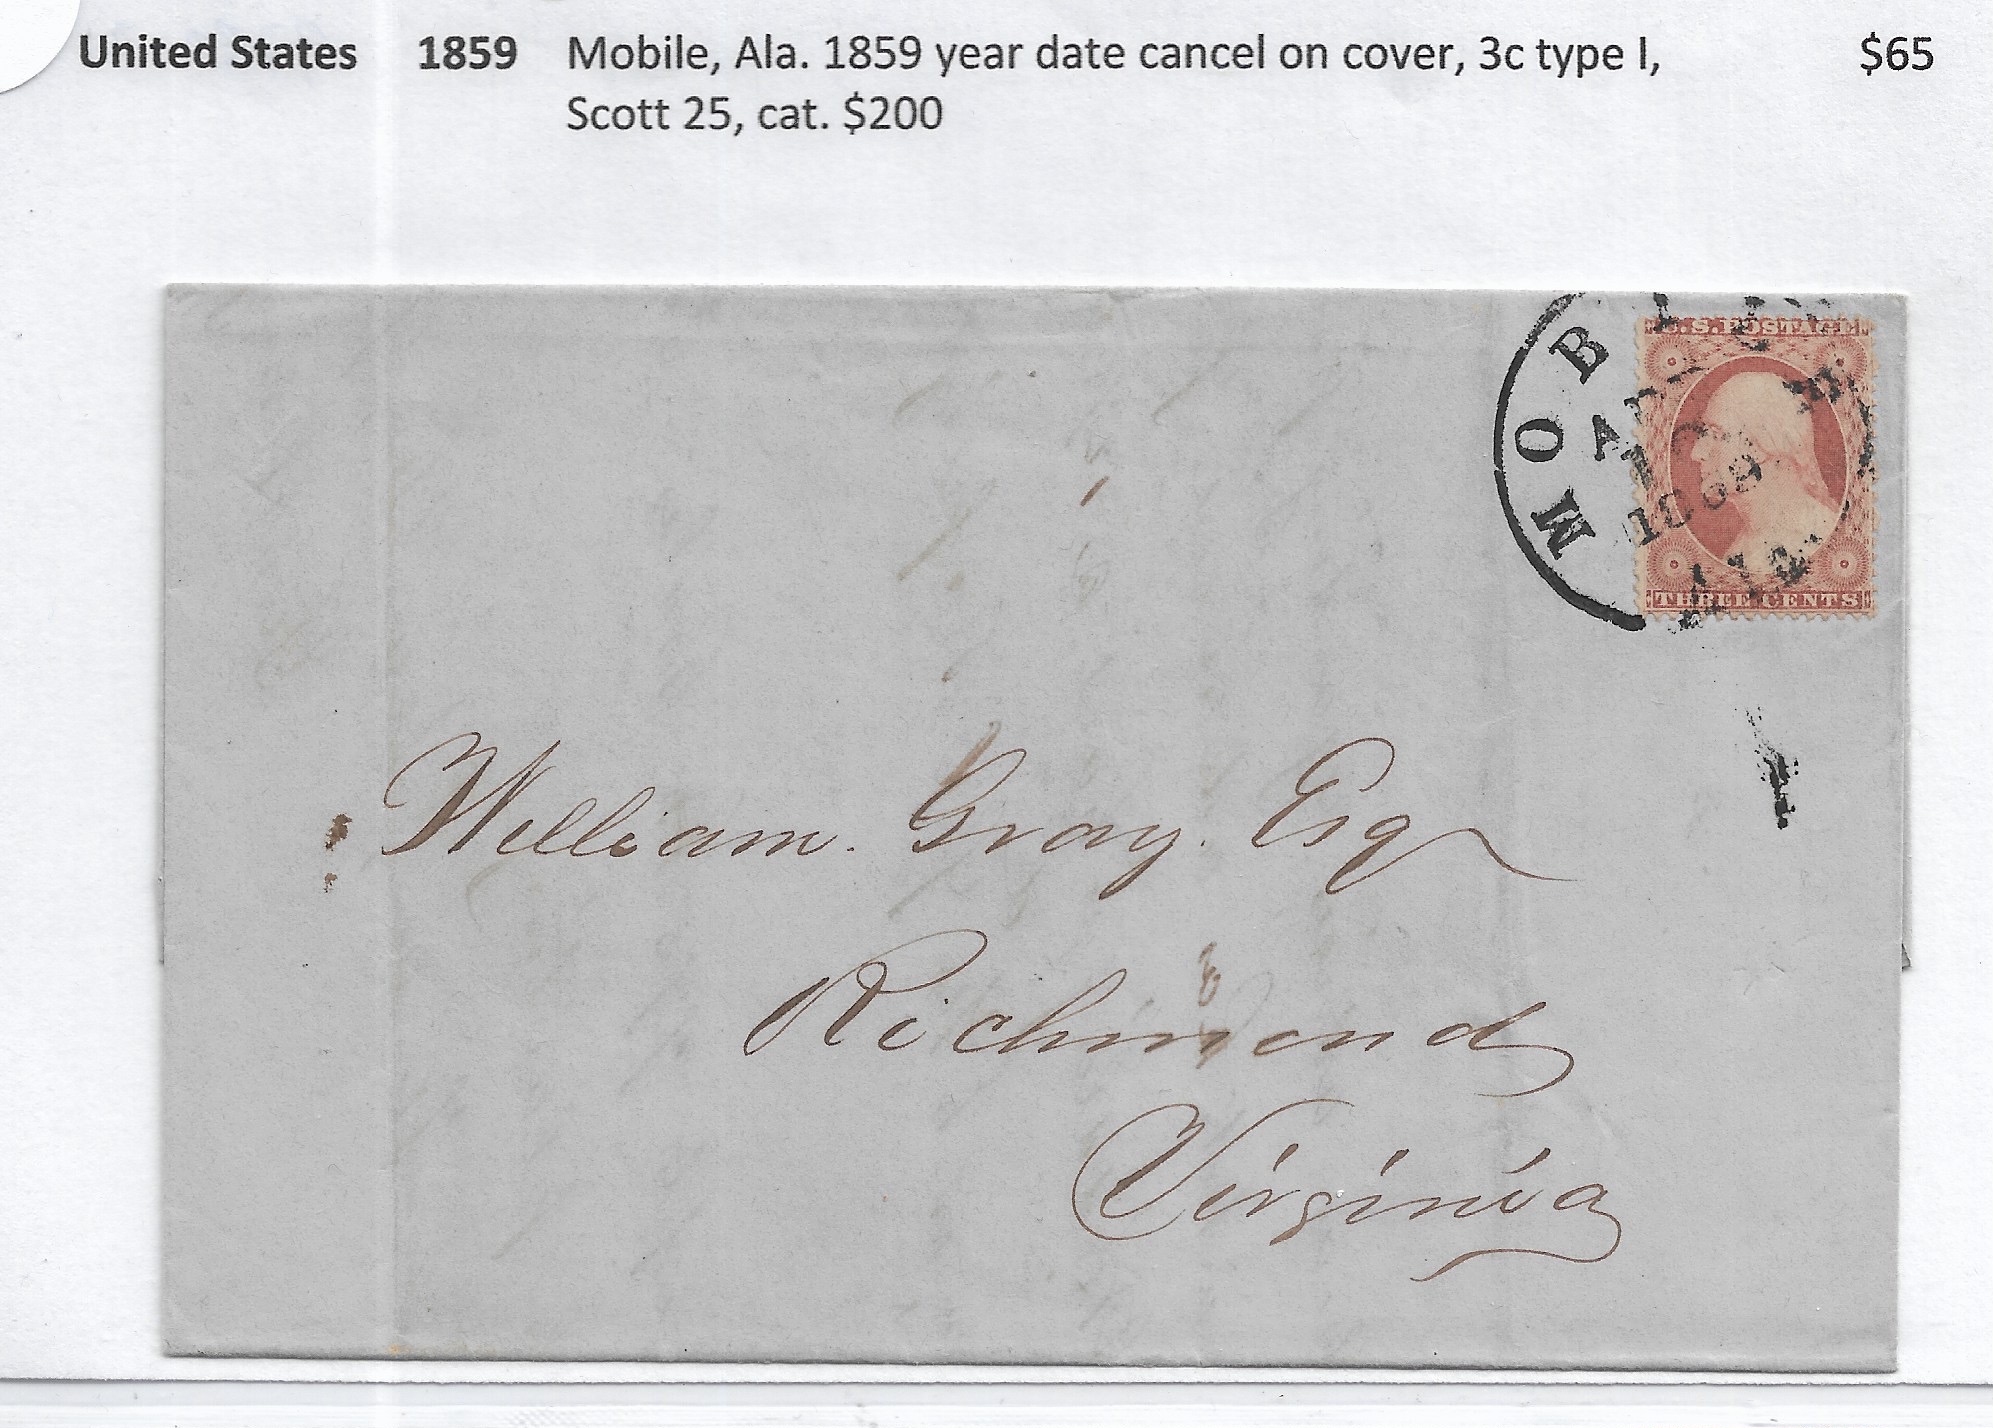 United States 1859 Mobile, Ala. 1859 year date cancel on cover, 3c type I, $65
Scott 25, cat. $200
MOBILE
U.S. POSTAGE
1859
Ala
THREE CENTS
William. Gray. Esq
Richmond
Virginia